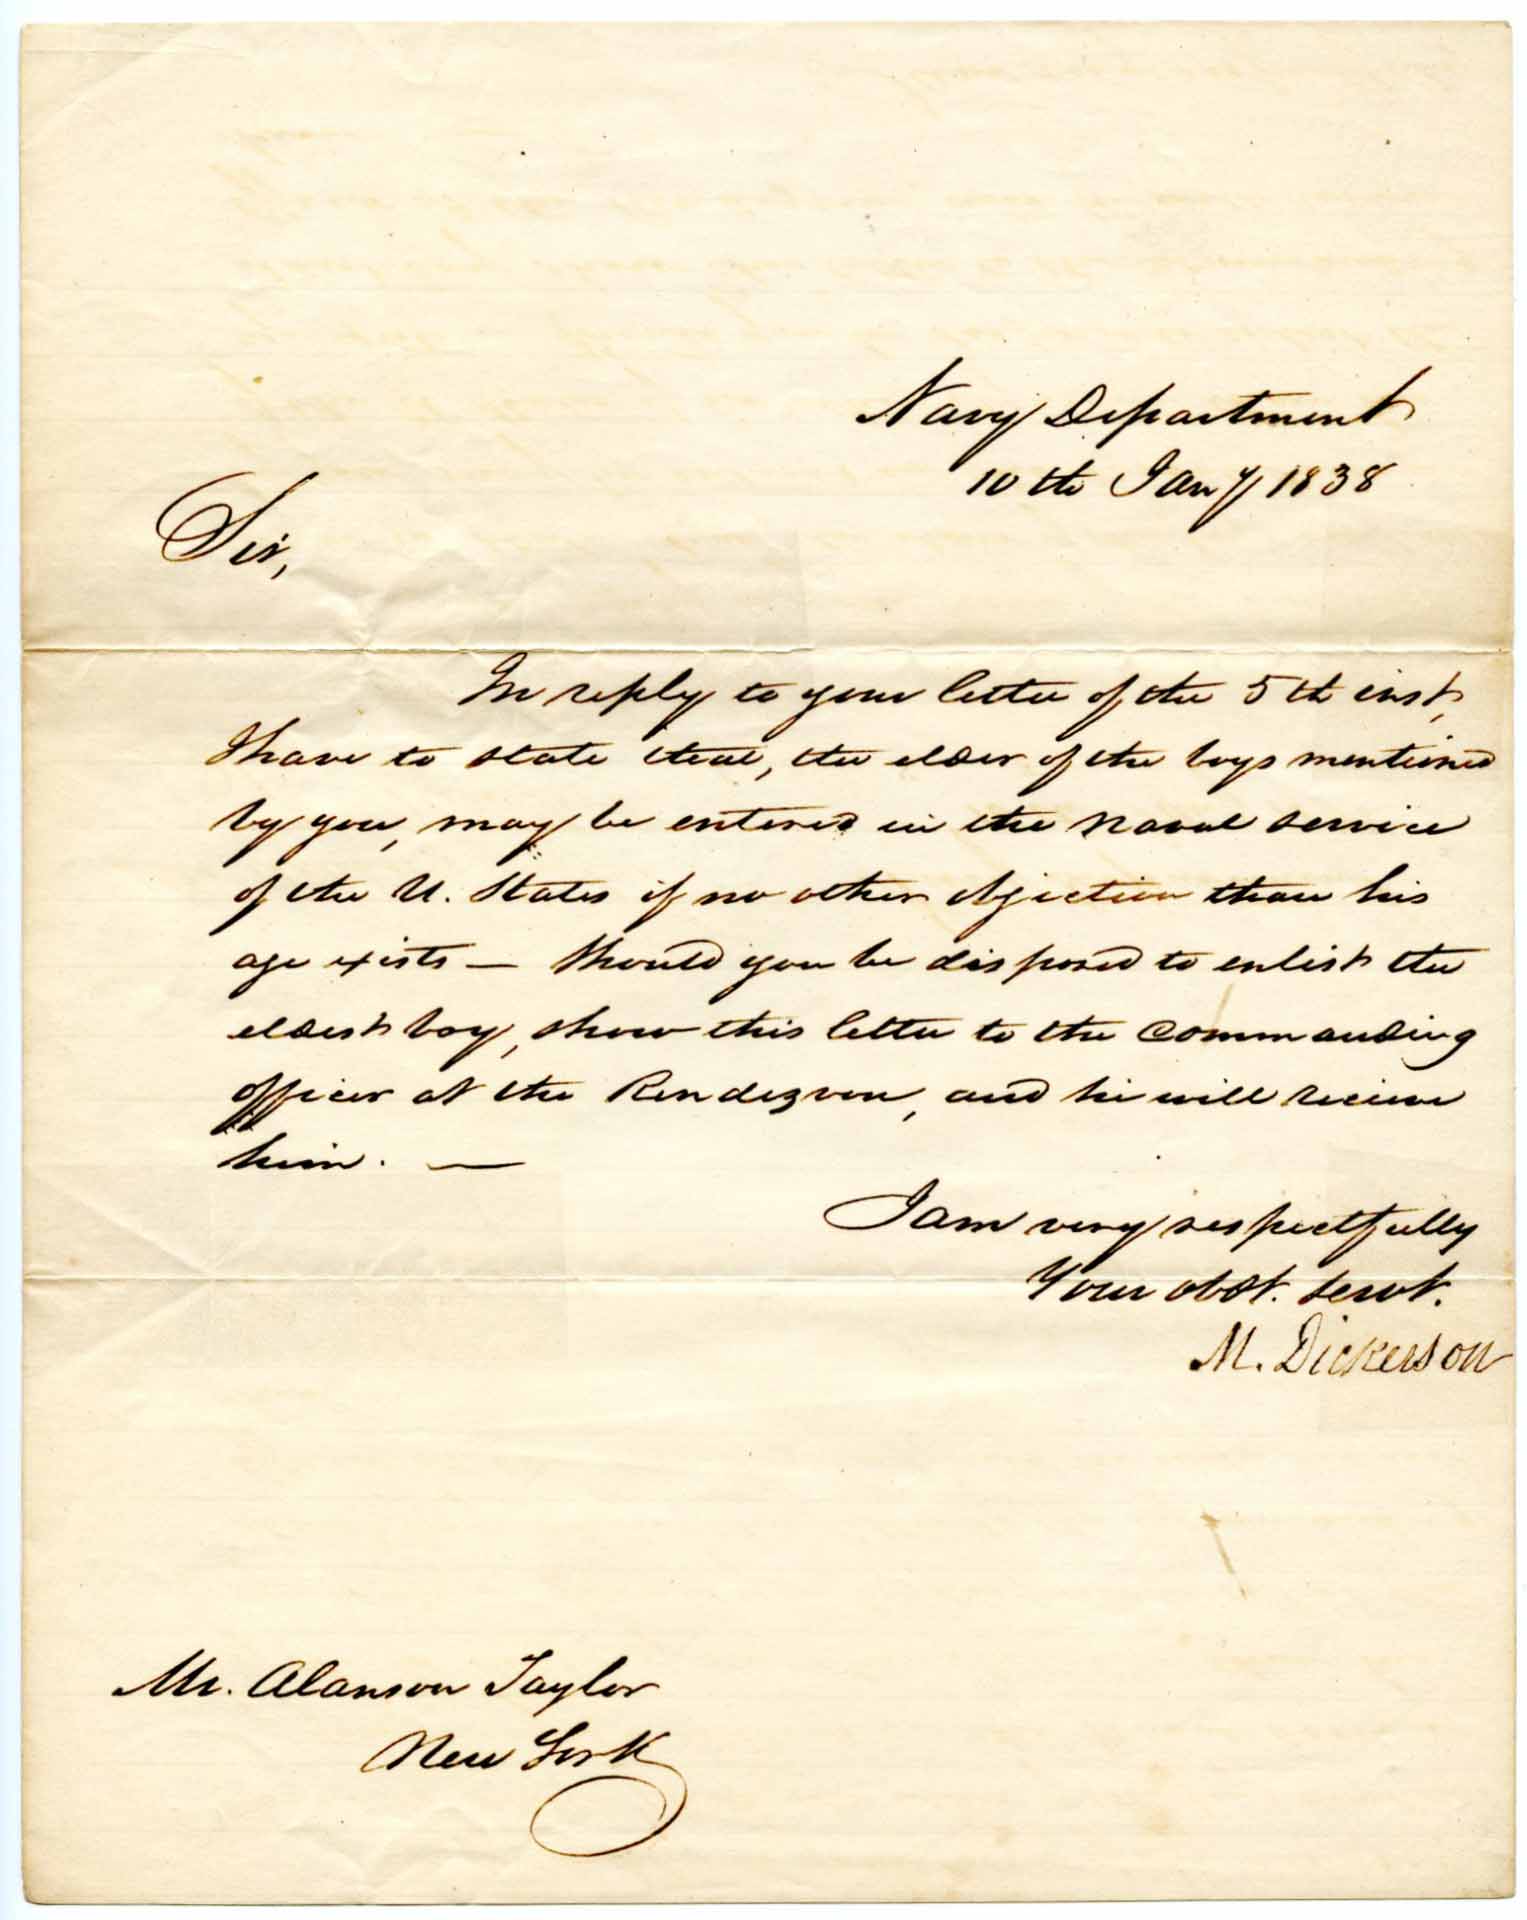 Navy Department
10th Jany 1838
Sir,
In reply to your letter of the 5th inst,
I have to state that, the elder of the boys mentioned
by you, may be entered in the naval service
of the U. States if no other objection than his
age exists — Should you be disposed to enlist the
eldest boy, show this letter to the Commanding
officer at the Rendezvou, and he will receive
him. —
I am very respectfully
Your obdt. servt.
M. Dickerson
Mr. Alanson Taylor
New York